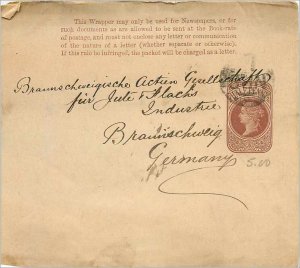 This Wrapper may only be used for Newspapers, or for
such documents as are allowed to be sent at the Book-rate
of postage, and must not enclose any letter or communication
of the nature of a letter (whether separate or otherwise).
If this rule be infringed, the packet will be charged as a letter.
Braunschweigische Actien Gesellschaft
für Jute & Flachs
Industrie
Braunschweig
Germany
5.00